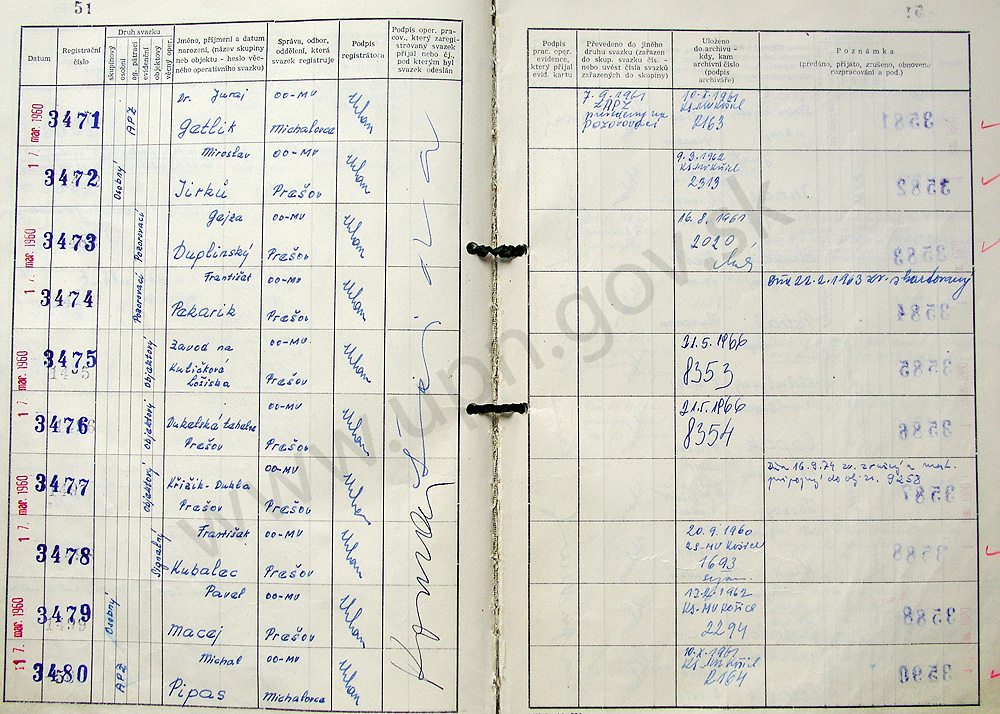 51
Datum
Registrační číslo
Druh svazku
skupinový
osobní
ag. pátrací
evidenční
objektový
věcný oper.
Jméno, příjmení a datum
narození, (název skupiny
nebo objektu - heslo věcného operativního svazku)
Správa, odbor,
oddělení, která
svazek registruje
Podpis
registrátora
Podpis oper. pracov. který zaregistrovaný svazek
přijal nebo čj.,
pod kterým byl
svazek odeslán
Podpis
prac. oper.
evidence,
který přijal
evid. kartu
Převedeno do jiného
druhu svazku (zařazen
do skup. svazku čís. -
nebo uvést čísla svazků
zařazených do skupiny)
Uloženo
do archivu -
kdy, kam
archivní číslo
(podpis
archiváře)
Poznámka
(předáno, přijato, zrušeno, obnoven.
rozpracování a pod.)
17 mar. 1960
3471
APZ
Dr. Juraj
Getlik
OO-MV
Michalovce
Urban
7. 9. 1961
pozorovací
10.X.1961
KS-MV Košice
2163
3472
Osobný
Miroslav
Jirků
OO-MV
Prešov
Urban
9.3.1962
KS-MV Košice
2313
17 mar. 1960
3473
Pozorovací
Gejza
Duplinský
OO-MV
Prešov
Urban
16.8.1961
2020
3474
Pozorovací
František
Pekarik
OO-MV
Prešov
Urban
Dňa 22.2.1963 zv. skartovaný
17 mar. 1960
3475
Objektový
Závod na
Kuličková
Ložiska
OO-MV
Prešov
Urban
21.5.1966
8353
3476
Objektový
Dukelská
Prešov
OO-MV
Prešov
Urban
21.5.1966
8354
17 mar. 1960
3477
Objektový
Křižík-Dukla
Prešov
OO-MV
Prešov
Urban
Dňa 16.9.74 zv. zrušený a mat.
pripojený do obj. zv. 9258
3478
Signálny
František
Kubalec
OO-MV
Prešov
Urban
20.9.1960
KS-MV Košice
1693
17 mar. 1960
3479
Osobný
Pavel
Macej
OO-MV
Prešov
Urban
1962
KS-MV Košice
2294
3480
APZ
Michal
Pipas
OO-MV
Michalovce
Urban
10.X.1961
KS-MV Košice
2164
www.upn.gov.sk